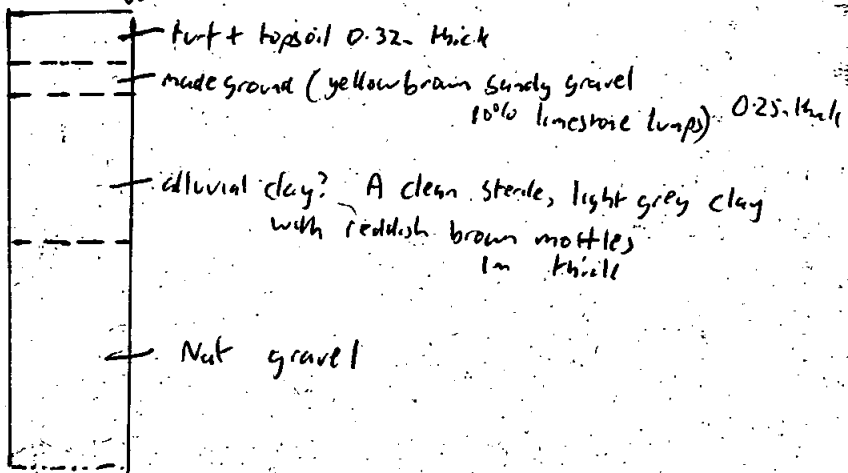 turf + topsoil 0.32m thick
made ground (yellow brown sandy gravel
10% limestone lumps) 0.25m thick
alluvial clay? A clean sterile, light grey clay
with reddish brown mottles
1m thick
Nat gravel